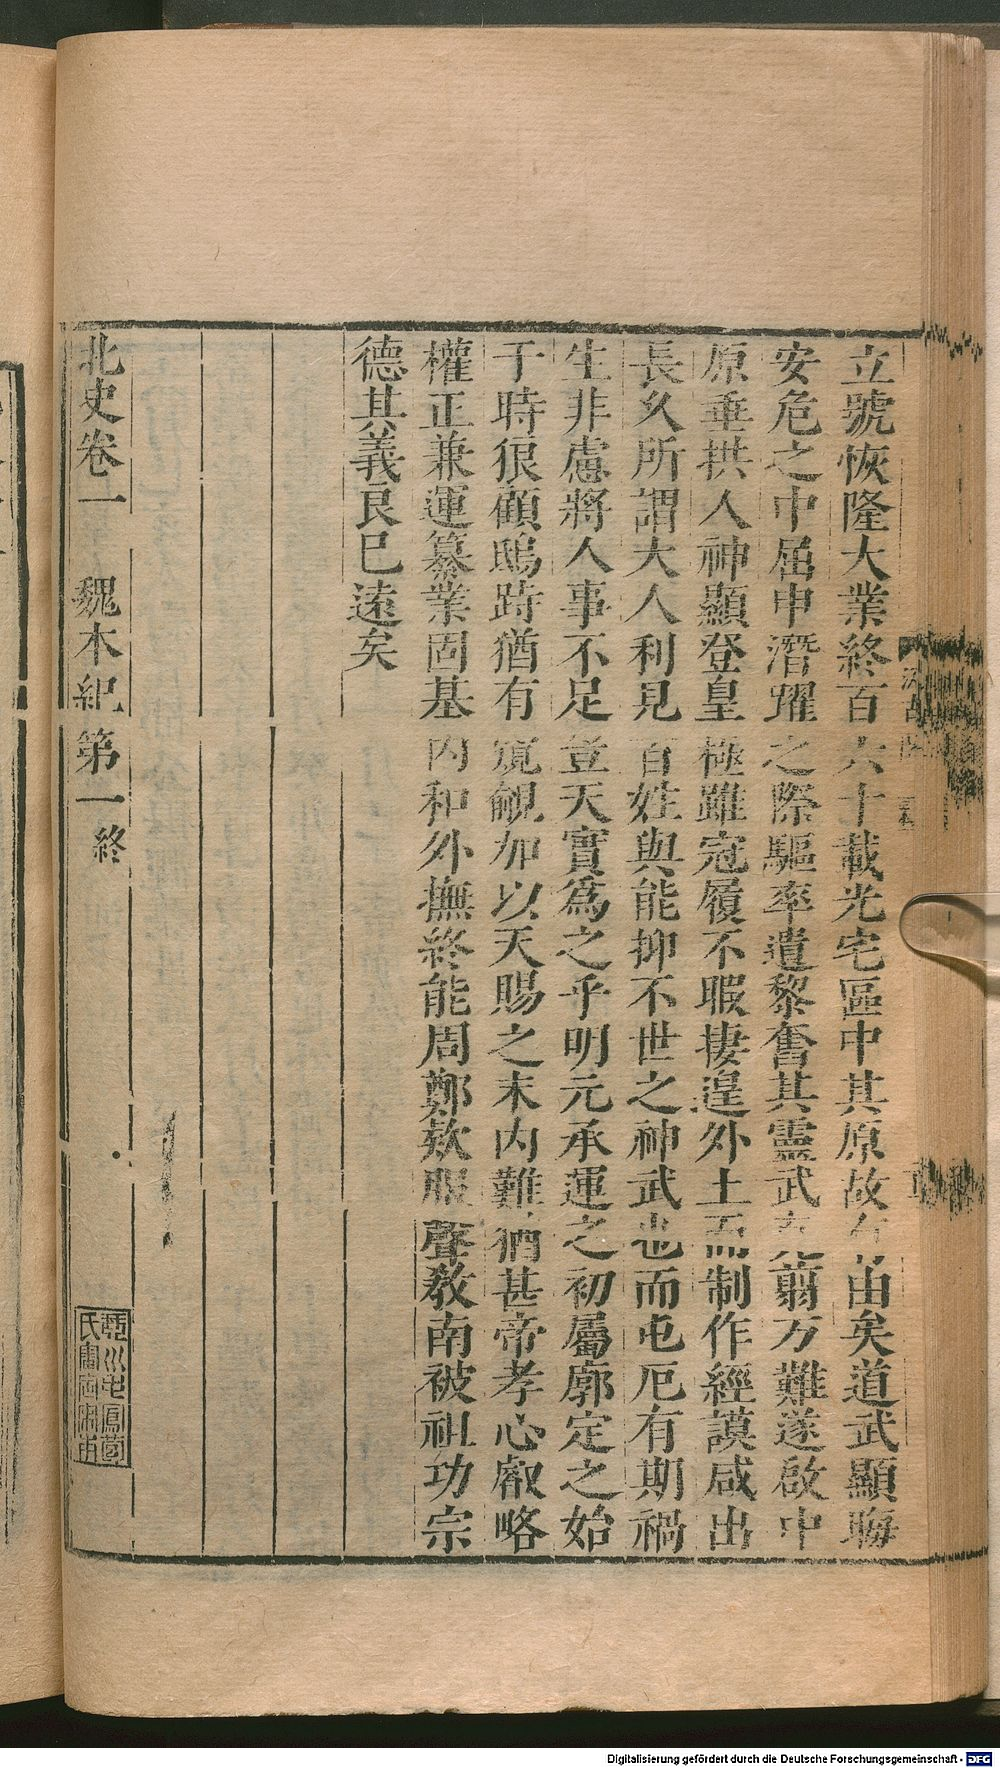 立號恢隆大業終百六十載光宅區中其原故有由矣道武顯晦
安危之中屈申潛躍之際驅率遺黎奮其靈武克翦方難遂啟中
原垂拱人神顯登皇極雖冠履不暇棲遑外土而制作經謨咸出
長久所謂大人利見百姓與能抑不世之神武也而屯厄有期禍
生非慮將人事不足豈天實爲之乎明元承運之初屬廓定之始
于時很顧鴟跱猶有窺覦加以天賜之末內難猶甚帝孝心叡略
權正兼運纂業固基內和外撫終能周鄭欵服聲教南被祖功宗
德其義良已遠矣
北史卷一 魏本紀第一終
Digitalisierung gefördert durch die Deutsche Forschungsgemeinschaft - DFG